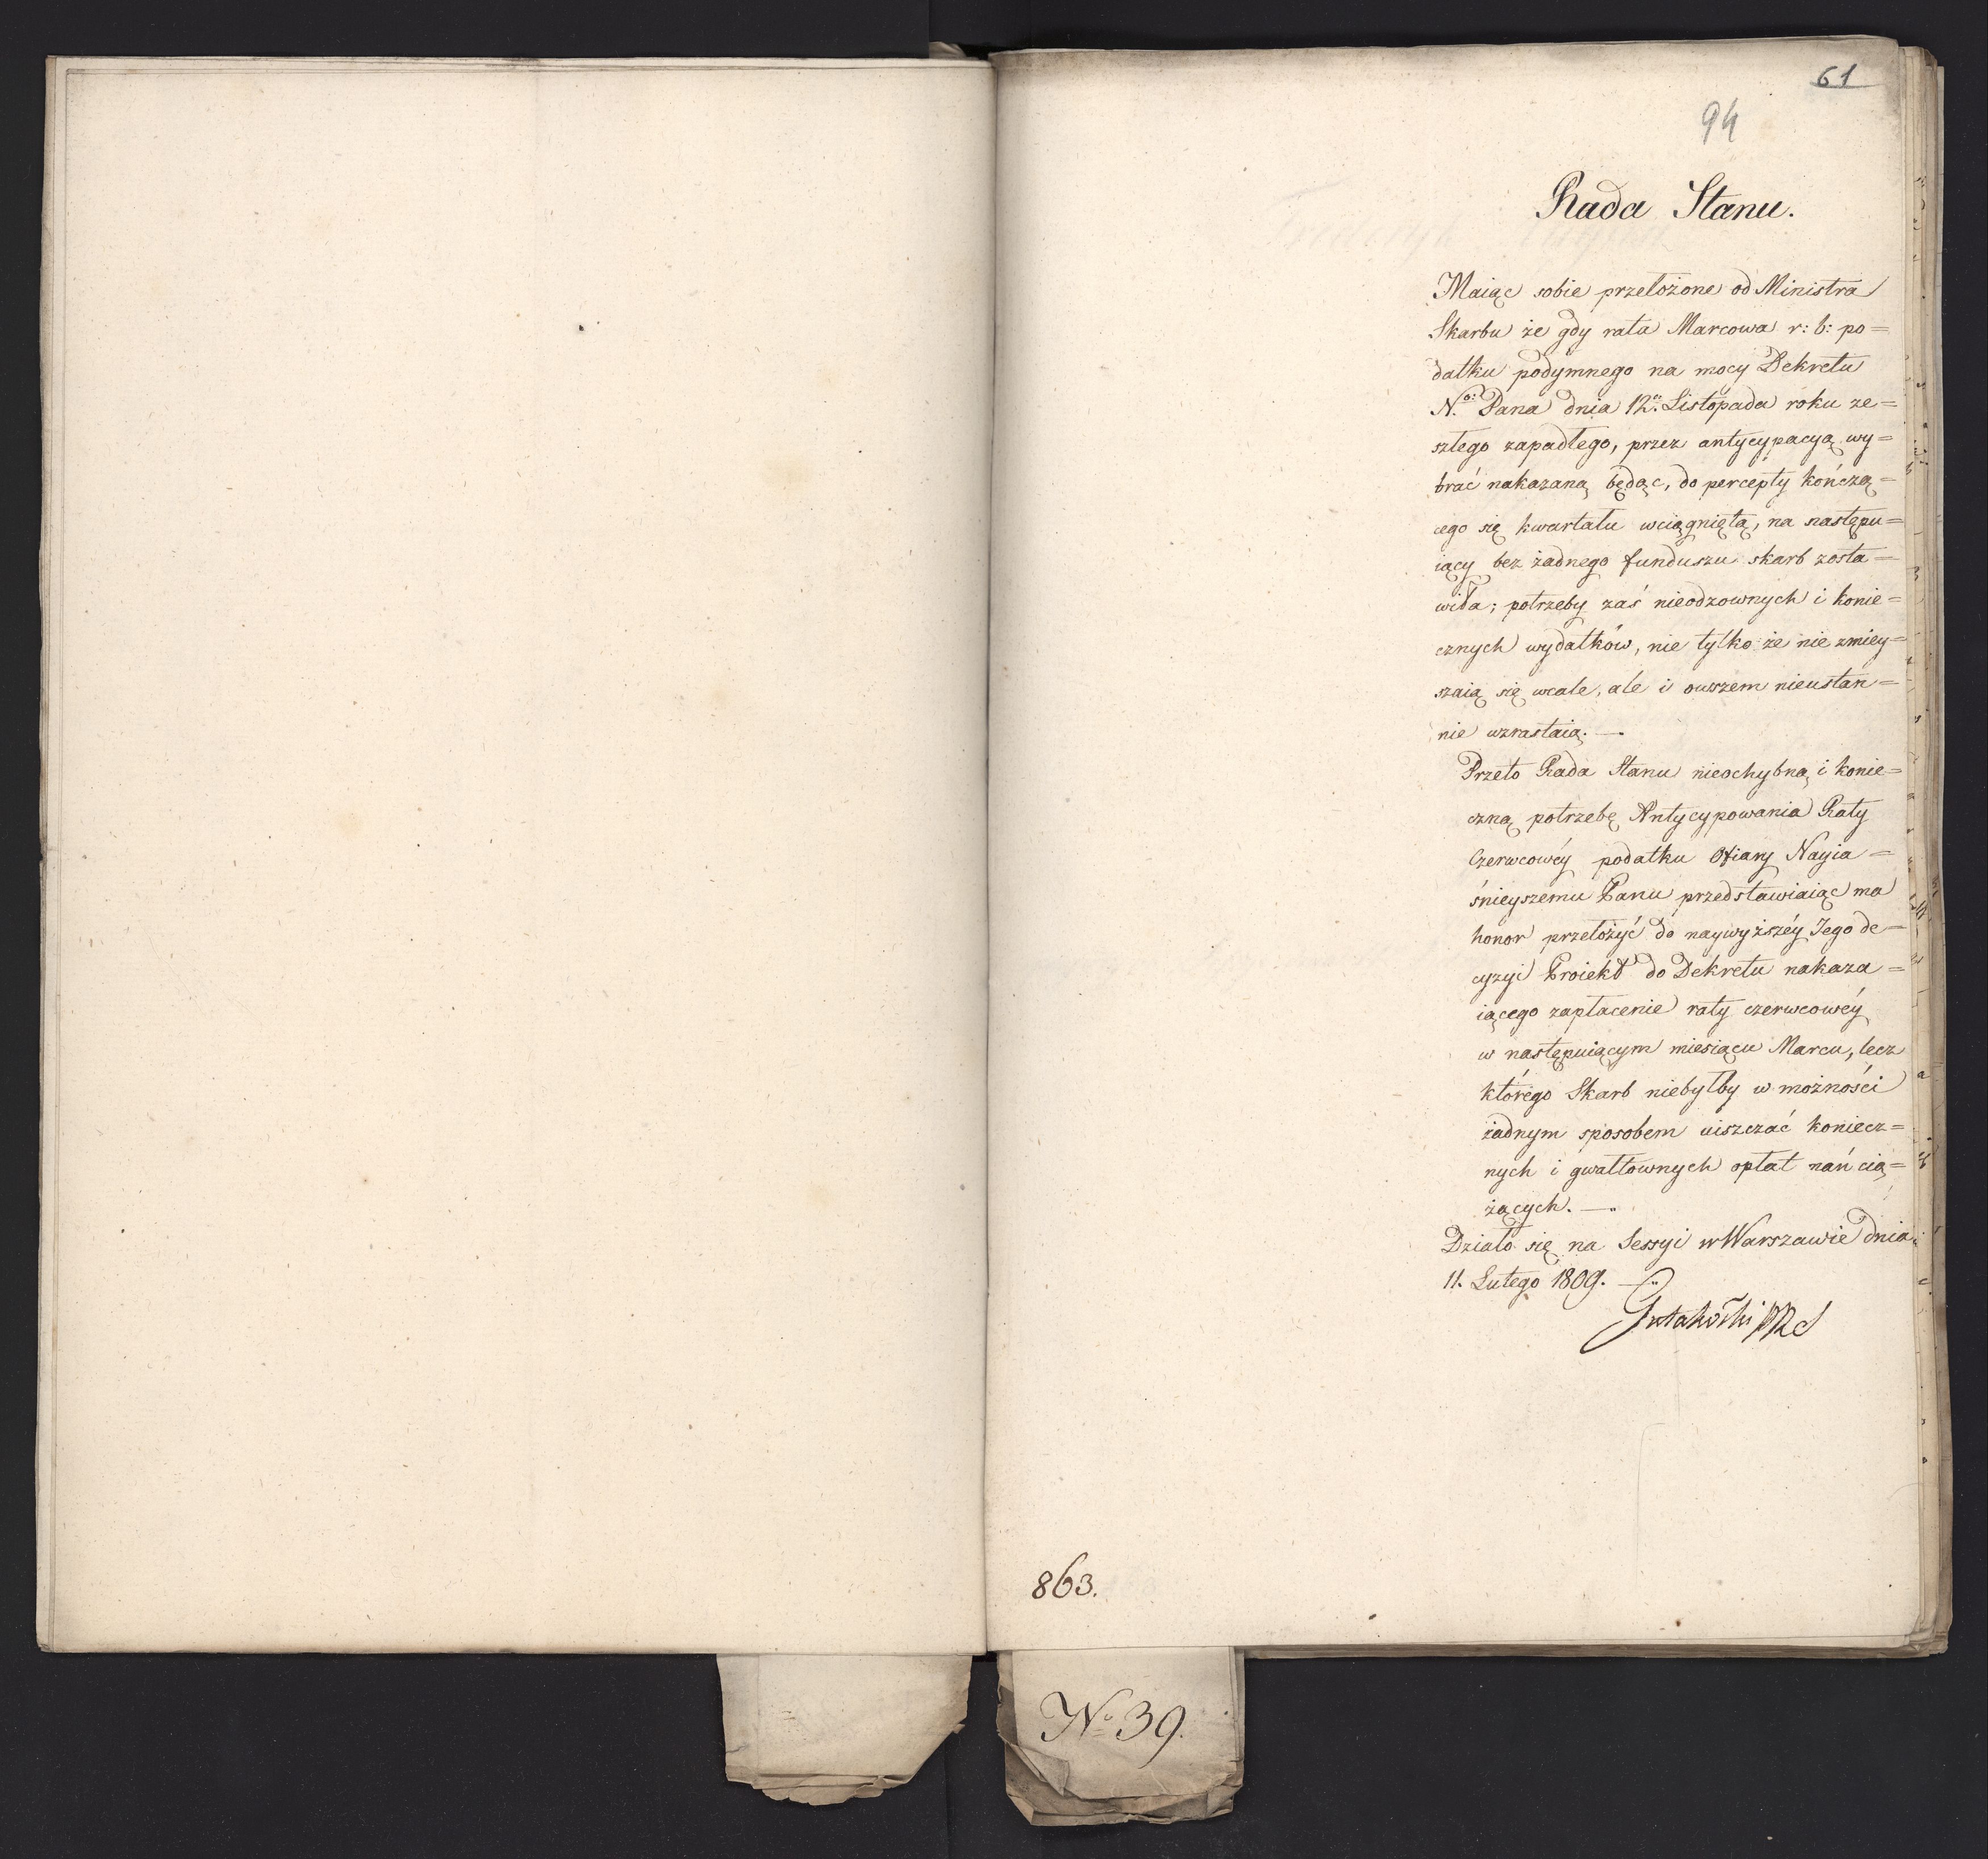 61
94
Rada Stanu.
Maiąc sobie przełożone od Ministra
Skarbu że gdy rata Marcowa r: b: po=
datku podymnego na mocy Dekretu
N.o: Pana dnia 12. Listopada roku ze=
szłego zapadłego, przez antycypacyą wy=
brać nakazaną będąc, do percepty kończą=
cego się kwartału wciągniętą, na następu=
iący bez żadnego funduszu skarb zosta=
wiła; potrzeby zaś nieodzownych i konie=
cznych wydatków, nie tylko że nie zmiey=
szaią się wcale, ale i owszem nieustan=
nie wzrastaią. —
Przeto Rada Stanu nieochybną i konie=
czną potrzebę Antycypowania Raty
Czerwcowéy podatku Ofiary Nayia=
śnieyszemu Panu przedstawiaiąc ma
honor przełożyć do naywyższéy Jego de=
cyzyi Proiekt do Dekretu nakaza=
iącego zapłacenie raty czerwcowéy
w następuiącym miesiącu Marcu, bez
którego Skarb niebyłby w możności
żadnym sposobem uiszczać koniecz=
nych i gwałtownych opłat nań cią=
żących. —
Działo się na Sessyi w Warszawie dnia
11. Lutego 1809. —
863.
No 39.